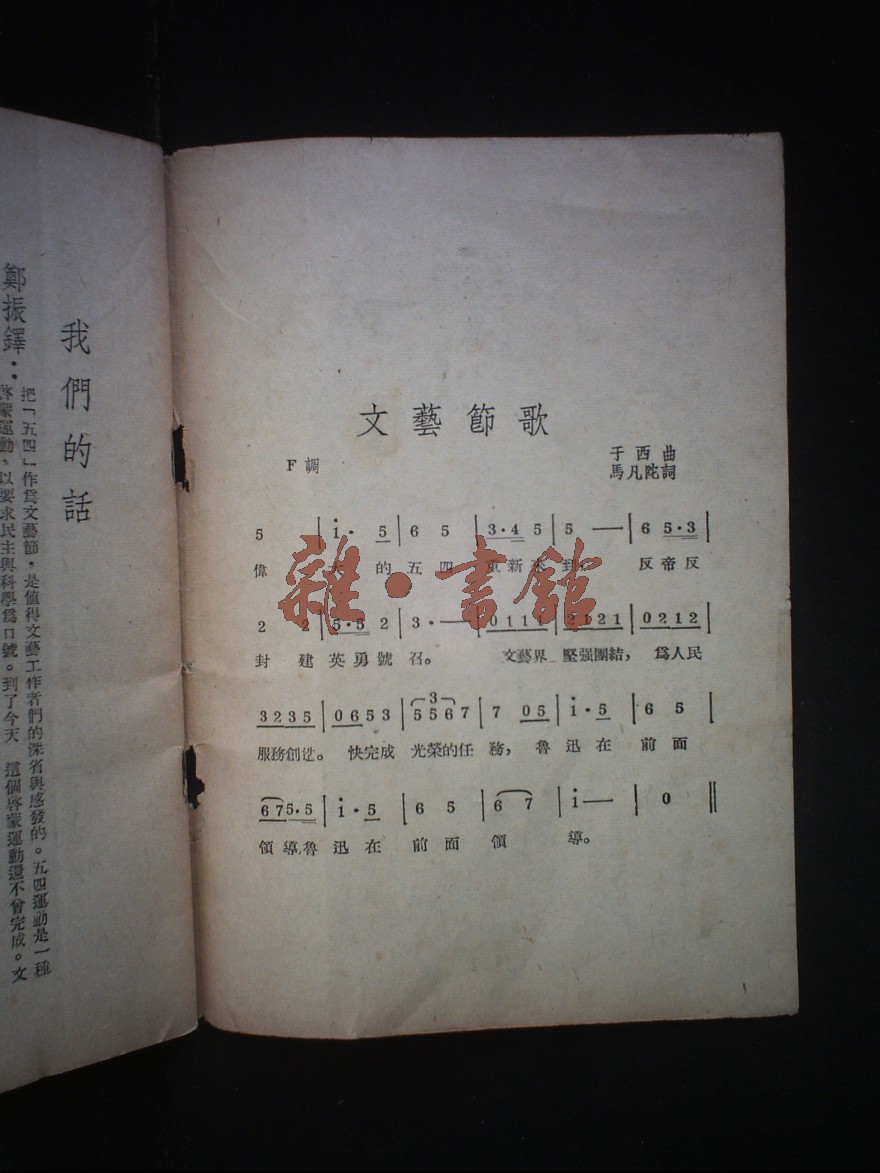 文藝節歌
F調
于西曲
馬凡陀詞
5 | i· 5 | 6 5 | 3·4 5 | 5 — | 6 5·3 |
偉 大 的 五 四 重新來 到。 反帝反
2 2 | 5·5 2 | 3·— | 0111 | 2121 | 0212 |
封 建 英勇號 召。 文藝界 堅强團結, 爲人民
3235 | 0653 | 5567 | 7 05 | i·5 | 6 5 |
3
服務創造。 快完成 光榮的任 務, 魯 迅在 前面
675·5 | i·5 | 6 5 | 6 7 | i— | 0 ‖
領導,魯 迅在 前面 領 導。
雜·書館
我們的話
鄭振鐸:
把「五四」作爲文藝節,是値得文藝工作者們的深省與感發的。五四運動是一種
啓蒙運動,以要求民主與科學爲口號。到了今天 這個啓蒙運動還不曾完成。文